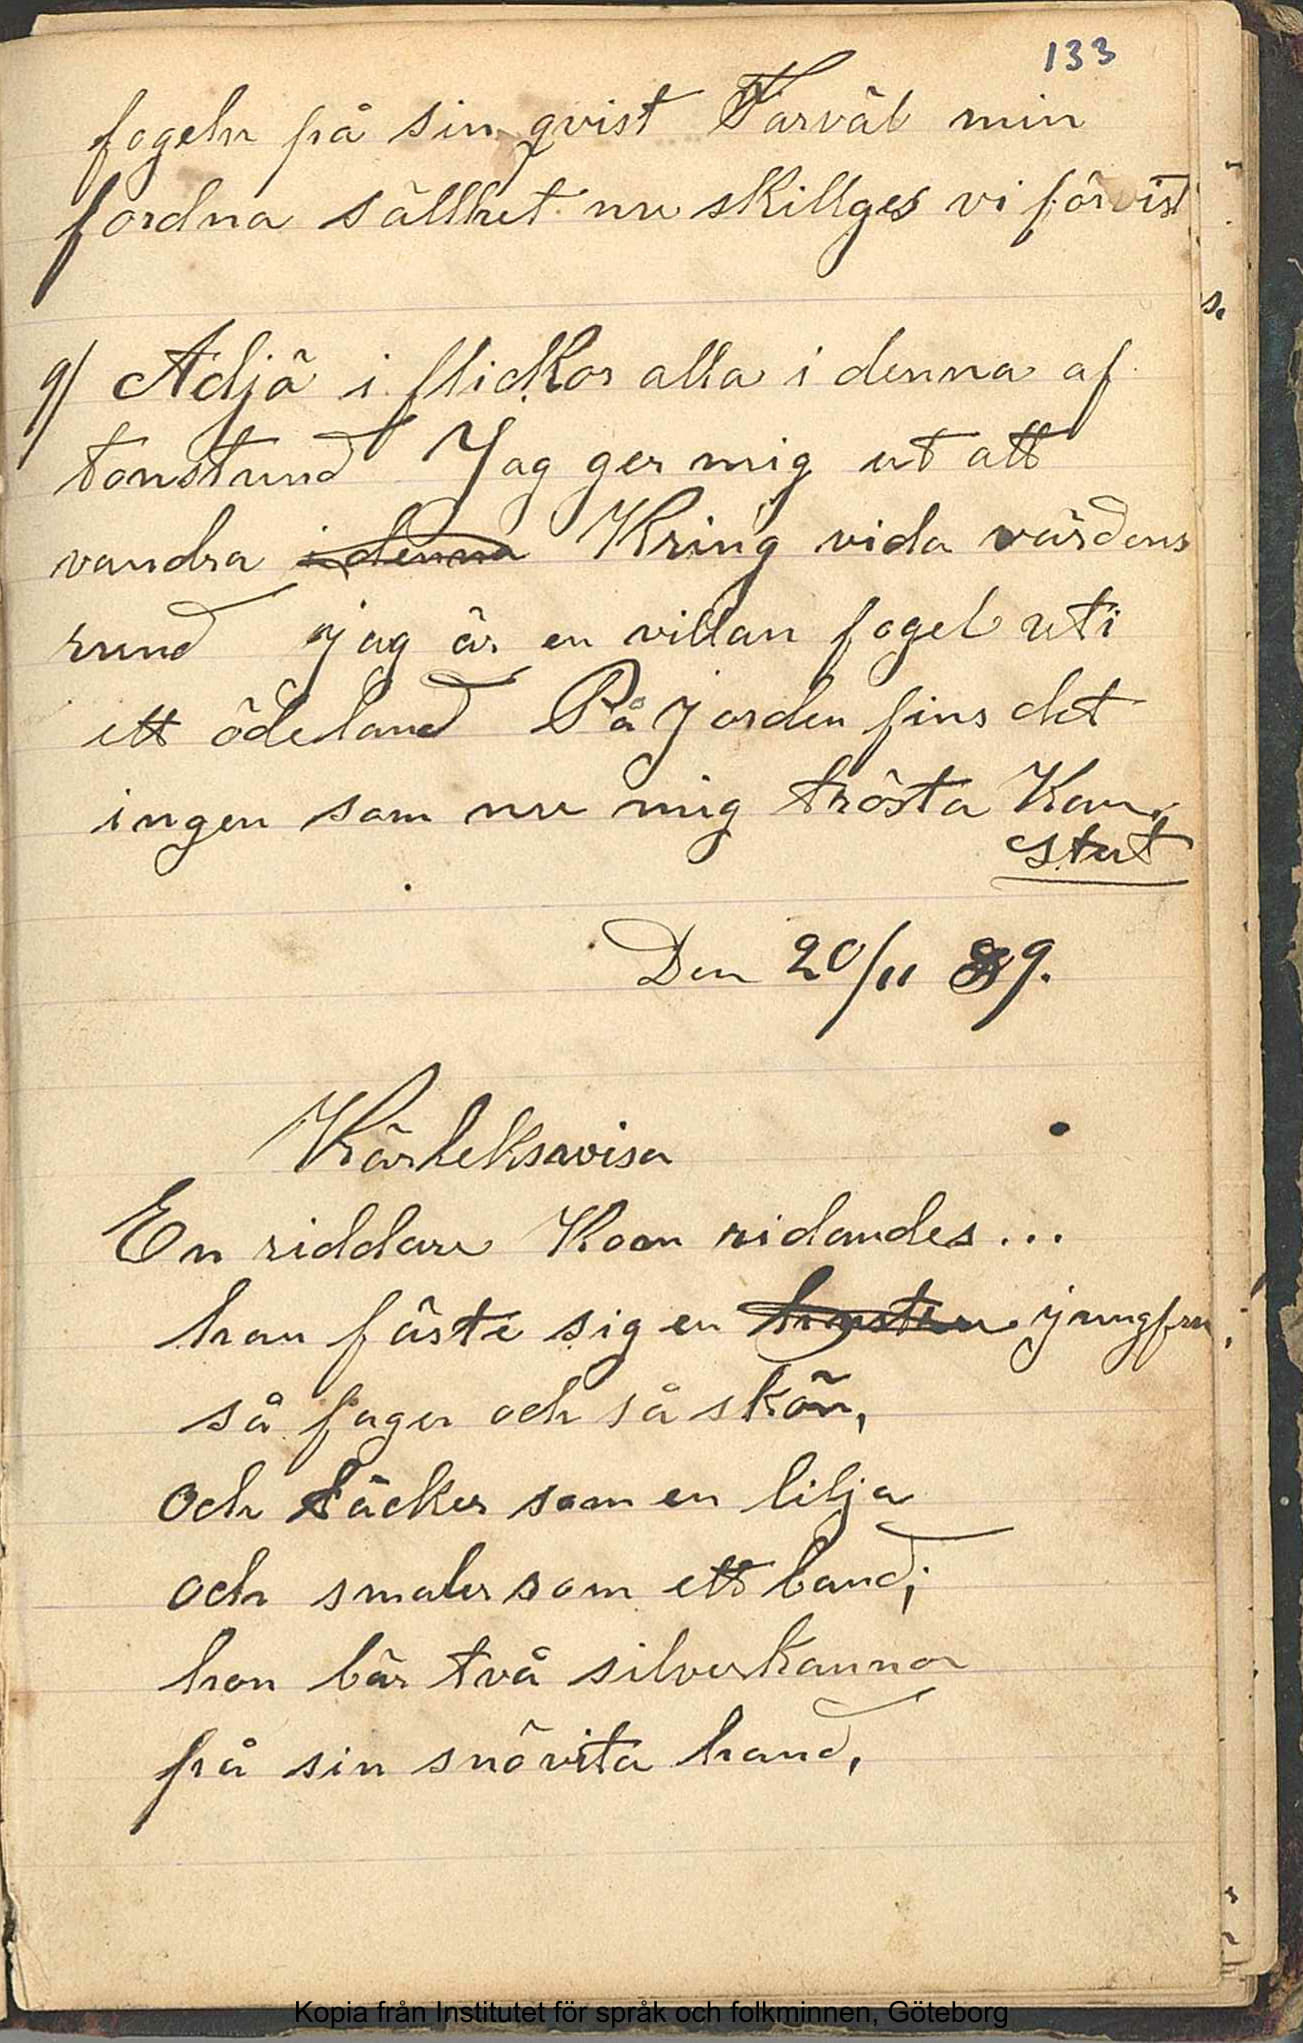 133
fogeln på sin qvist Farväl min
fordna sällhet nu skillges vi förvist
9) Adjö i flickor alla i denna af
tonstund Jag ger mig ut att
vandra i denna Kring vida värdens
rund jag är en villan fogel uti
ett ödeland På jorden fins det
ingen som nu mig trösta Kan.
slut
Den 20/11 89.
Kärleksvisa
En riddare Kom ridandes...
han fäste sig en jungfru,
så fager och så skön,
och täcker som en lilja
och smaler som ett band;
hon bär två silverkannor
på sin snövita hand,
Kopia från Institutet för språk och folkminnen, Göteborg